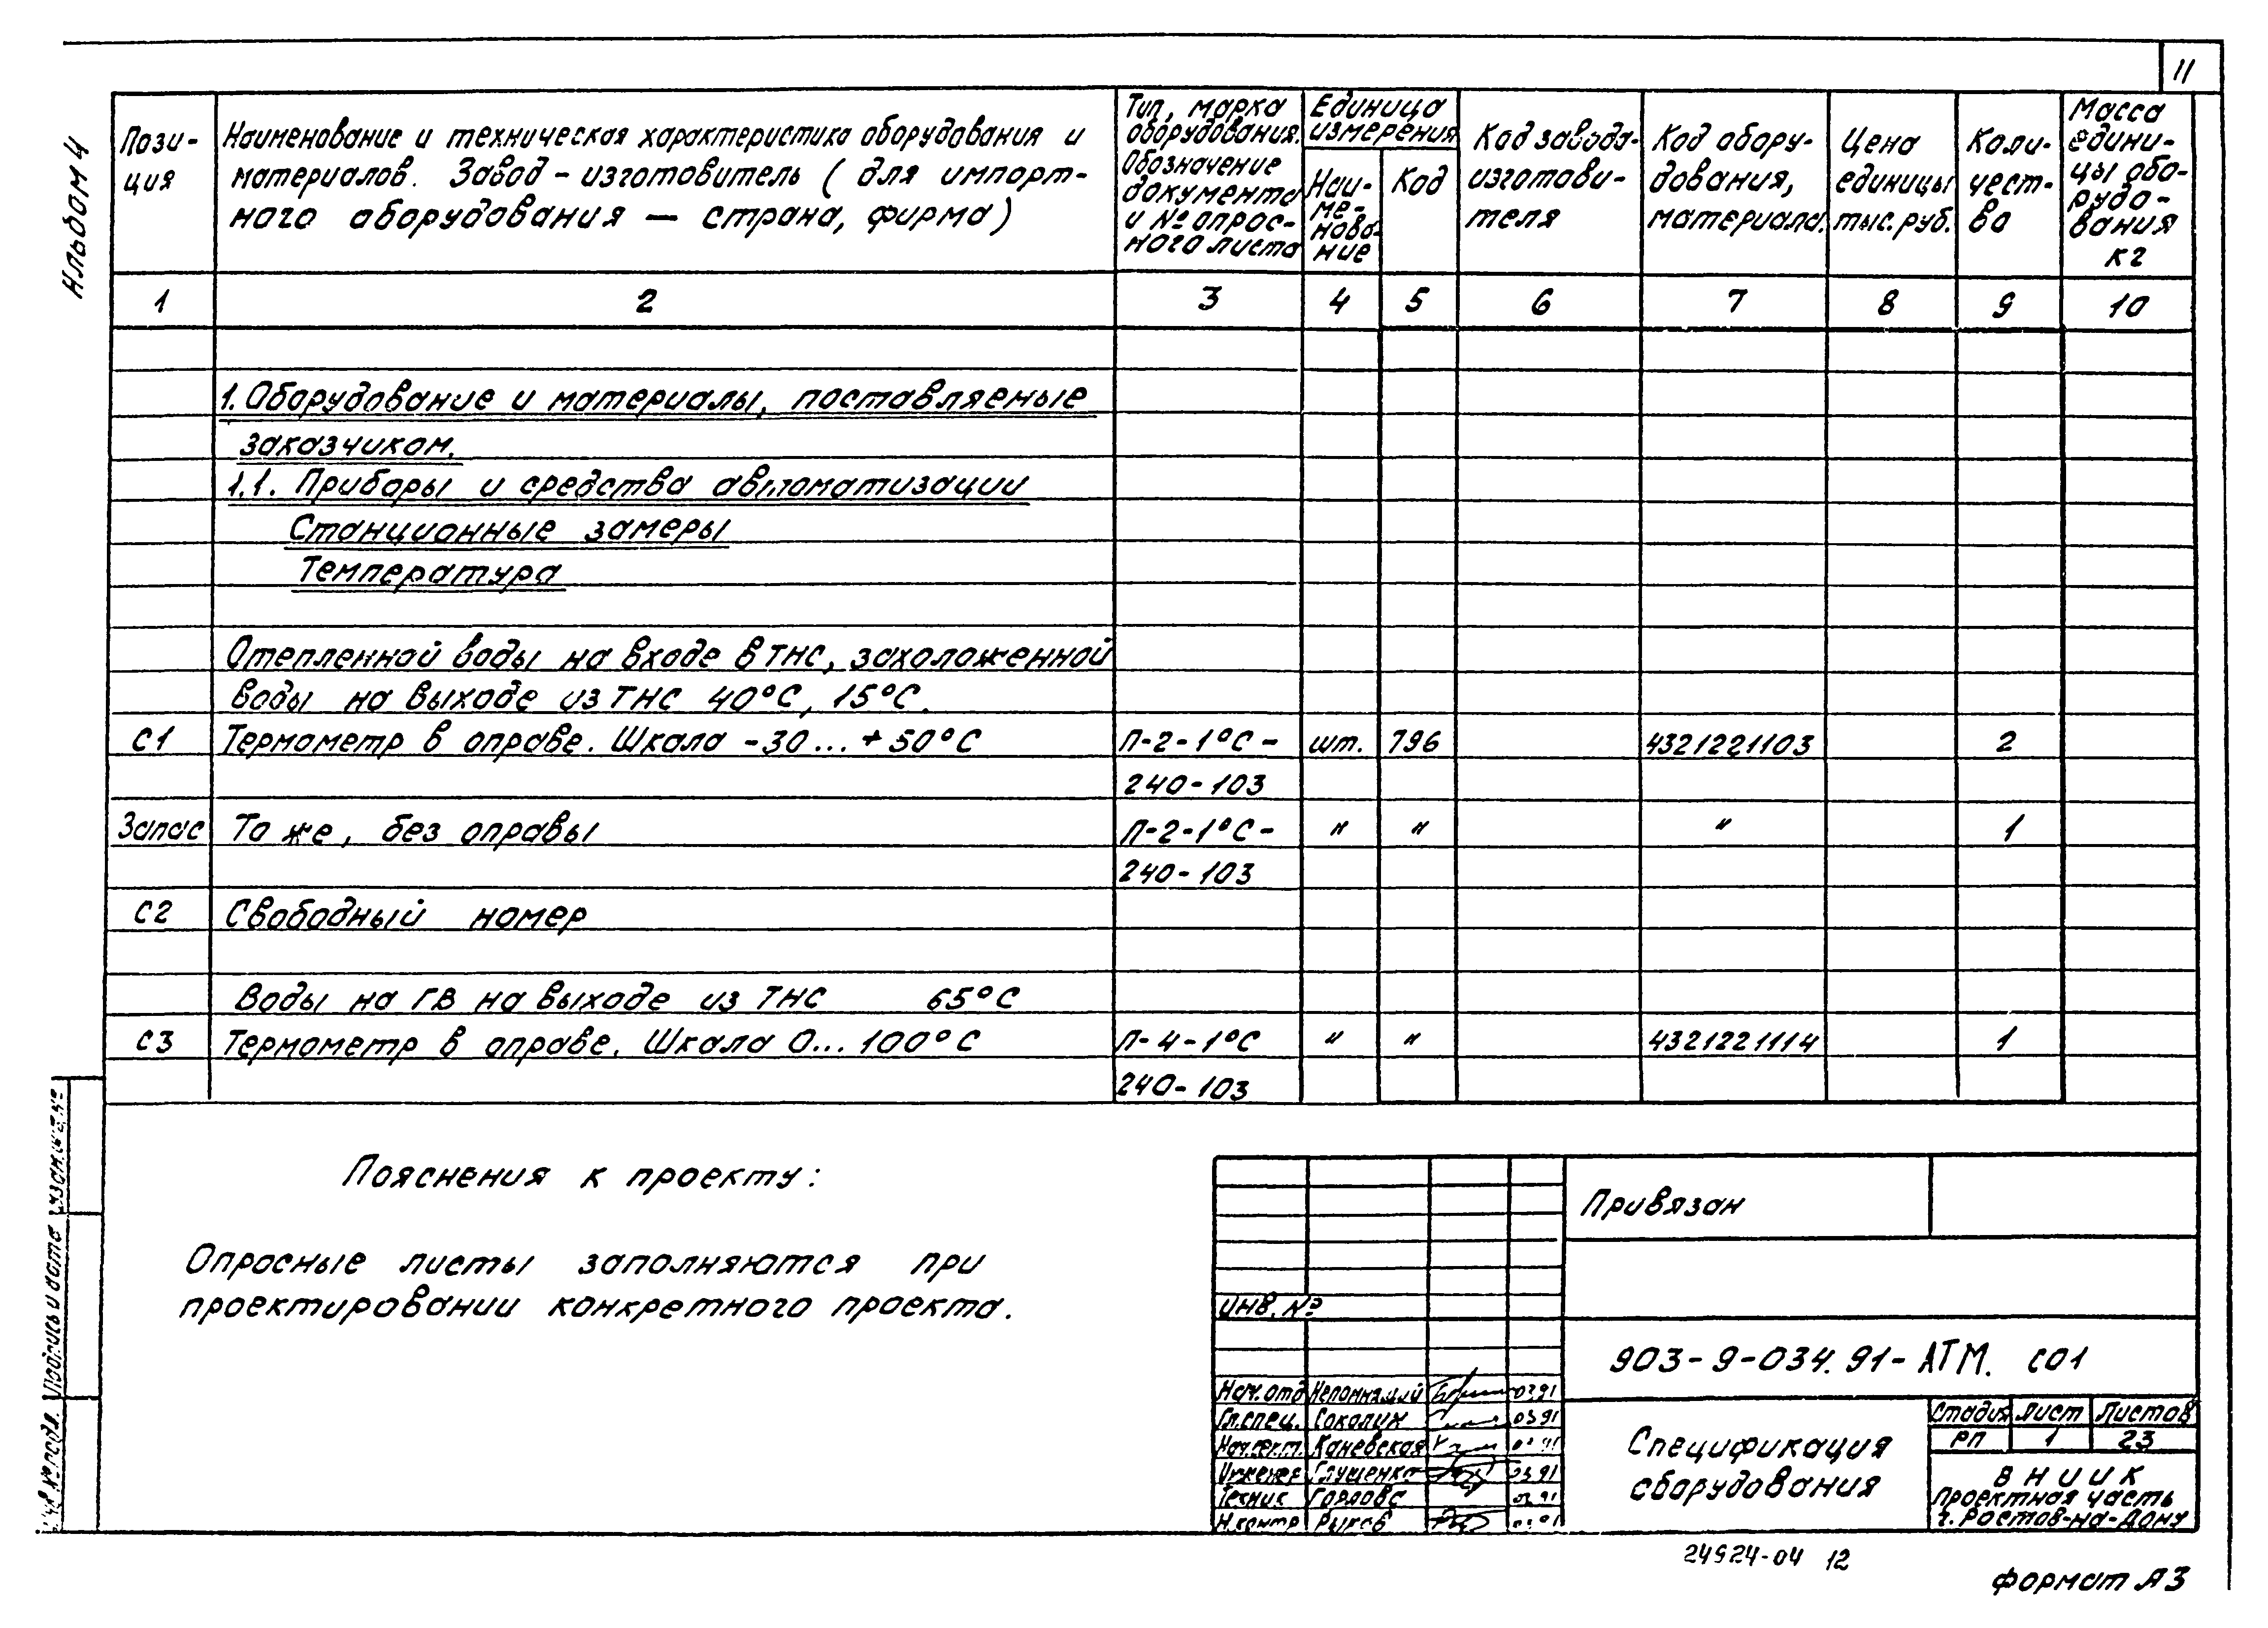 11
Альбом 4
Пози-
ция
Наименование и техническая характеристика оборудования и
материалов. Завод-изготовитель (для импорт-
ного оборудования — страна, фирма)
Тип, марка
оборудования.
Обозначение
документа
и № опрос-
ного листа
Единица
измерения
Наи-
ме-
нова-
ние
Код
Код завода-
изготови-
теля
Код обору-
дования,
материала.
Цена
единицы
тыс. руб.
Коли-
чест-
во
Масса
едини-
цы обо-
рудо-
вания
кг
1 2 3 4 5 6 7 8 9 10
1. Оборудование и материалы, поставляемые
заказчиком.
1.1. Приборы и средства автоматизации
Станционные замеры
Температура
Отепленной воды на входе в ТНС, захоложенной
воды на выходе из ТНС 40°С, 15°С.
С1 Термометр в оправе. Шкала -30...+50°С П-2-1°С- шт. 796 4321221103 2
240-103
Запас То же, без оправы П-2-1°С- " " " 1
240-103
С2 Свободный номер
Воды на ГВ на выходе из ТНС 65°С
С3 Термометр в оправе. Шкала 0...100°С П-4-1°С " " 4321221114 1
240-103
Пояснения к проекту:
Опросные листы заполняются при
проектировании конкретного проекта.
Привязан
Инв. №
903-9-034.91-АТМ. С01
Нач.отд Непомнящий 03.91
Гл.спец. Соколин 03.91
Каневская
Инженер Глущенко 03.91
Техник 03.91
Н.контр Рыков
Спецификация
оборудования
Стадия Лист Листов
РП 1 23
ВНИИК
Проектная часть
г. Ростов-на-Дону
Взам.инв.№
Подпись и дата
Инв.№ подл.
24924-04 12
Формат А3